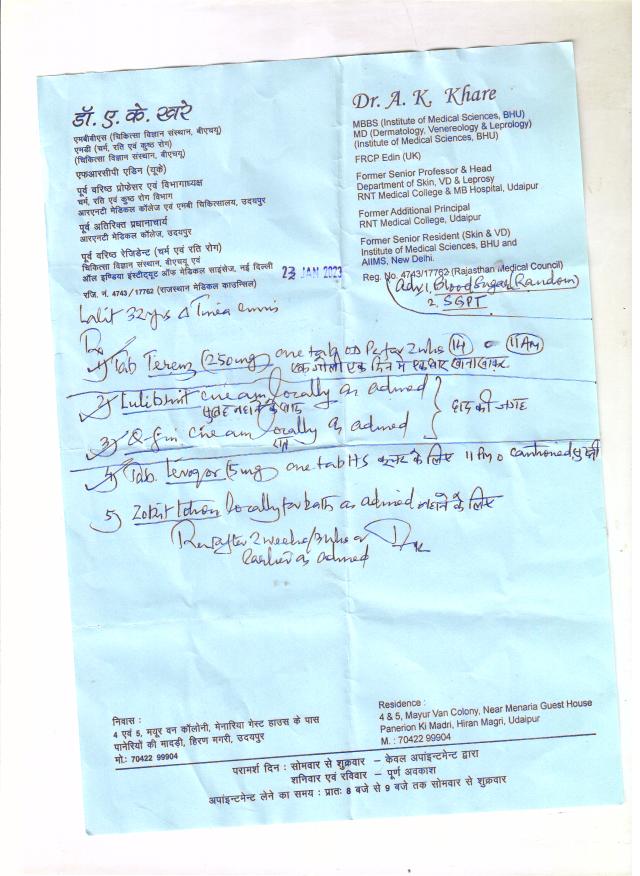 डॉ. ए. के. खरे
एमबीबीएस (चिकित्सा विज्ञान संस्थान, बीएचयू)
एमडी (चर्म, रति एवं कुष्ठ रोग)
(चिकित्सा विज्ञान संस्थान, बीएचयू)
एफआरसीपी एडिन (यूके)
पूर्व वरिष्ठ प्रोफेसर एवं विभागाध्यक्ष
चर्म, रति एवं कुष्ठ रोग विभाग
आरएनटी मेडिकल कॉलेज एवं एमबी चिकित्सालय, उदयपुर
पूर्व अतिरिक्त प्रधानाचार्य
आरएनटी मेडिकल कॉलेज, उदयपुर
पूर्व वरिष्ठ रेजिडेन्ट (चर्म एवं रति रोग)
चिकित्सा विज्ञान संस्थान, बीएचयू एवं
ऑल इण्डिया इंस्टीट्यूट ऑफ मेडिकल साइंसेज, नई दिल्ली
रजि. नं. 4743/17762 (राजस्थान मेडिकल काउन्सिल)
Dr. A. K. Khare
MBBS (Institute of Medical Sciences, BHU)
MD (Dermatology, Venereology & Leprology)
(Institute of Medical Sciences, BHU)
FRCP Edin (UK)
Former Senior Professor & Head
Department of Skin, VD & Leprosy
RNT Medical College & MB Hospital, Udaipur
Former Additional Principal
RNT Medical College, Udaipur
Former Senior Resident (Skin & VD)
Institute of Medical Sciences, BHU and
AIIMS, New Delhi.
Reg. No. 4743/17762 (Rajasthan Medical Council)
23 JAN 2023
Adv 1. Blood Sugar (Random)
2. SGPT
Lalit 32yrs Δ Tinea cruris
Rx
1) Tab (250mg) one tab OD 14 11AM
एक गोली एक दिन में एक बार खाना खाकर
2) cream locally as advised
सुबह नहाने के बाद
3) cream locally as advised
रात
दाद की जगह
4) Tab. (5mg) one tab HS के लिए
5) locally for bath as advised नहाने के लिए
after 2 weeks/
earlier as advised
निवास :
4 एवं 5, मयूर वन कॉलोनी, मेनारिया गेस्ट हाउस के पास
पानेरियों की मादड़ी, हिरण मगरी, उदयपुर
मो.: 70422 99904
Residence :
4 & 5, Mayur Van Colony, Near Menaria Guest House
Panerion Ki Madri, Hiran Magri, Udaipur
M. : 70422 99904
परामर्श दिन : सोमवार से शुक्रवार – केवल अपांइन्टमेन्ट द्वारा
शनिवार एवं रविवार – पूर्ण अवकाश
अपांइन्टमेन्ट लेने का समय : प्रातः 8 बजे से 9 बजे तक सोमवार से शुक्रवार